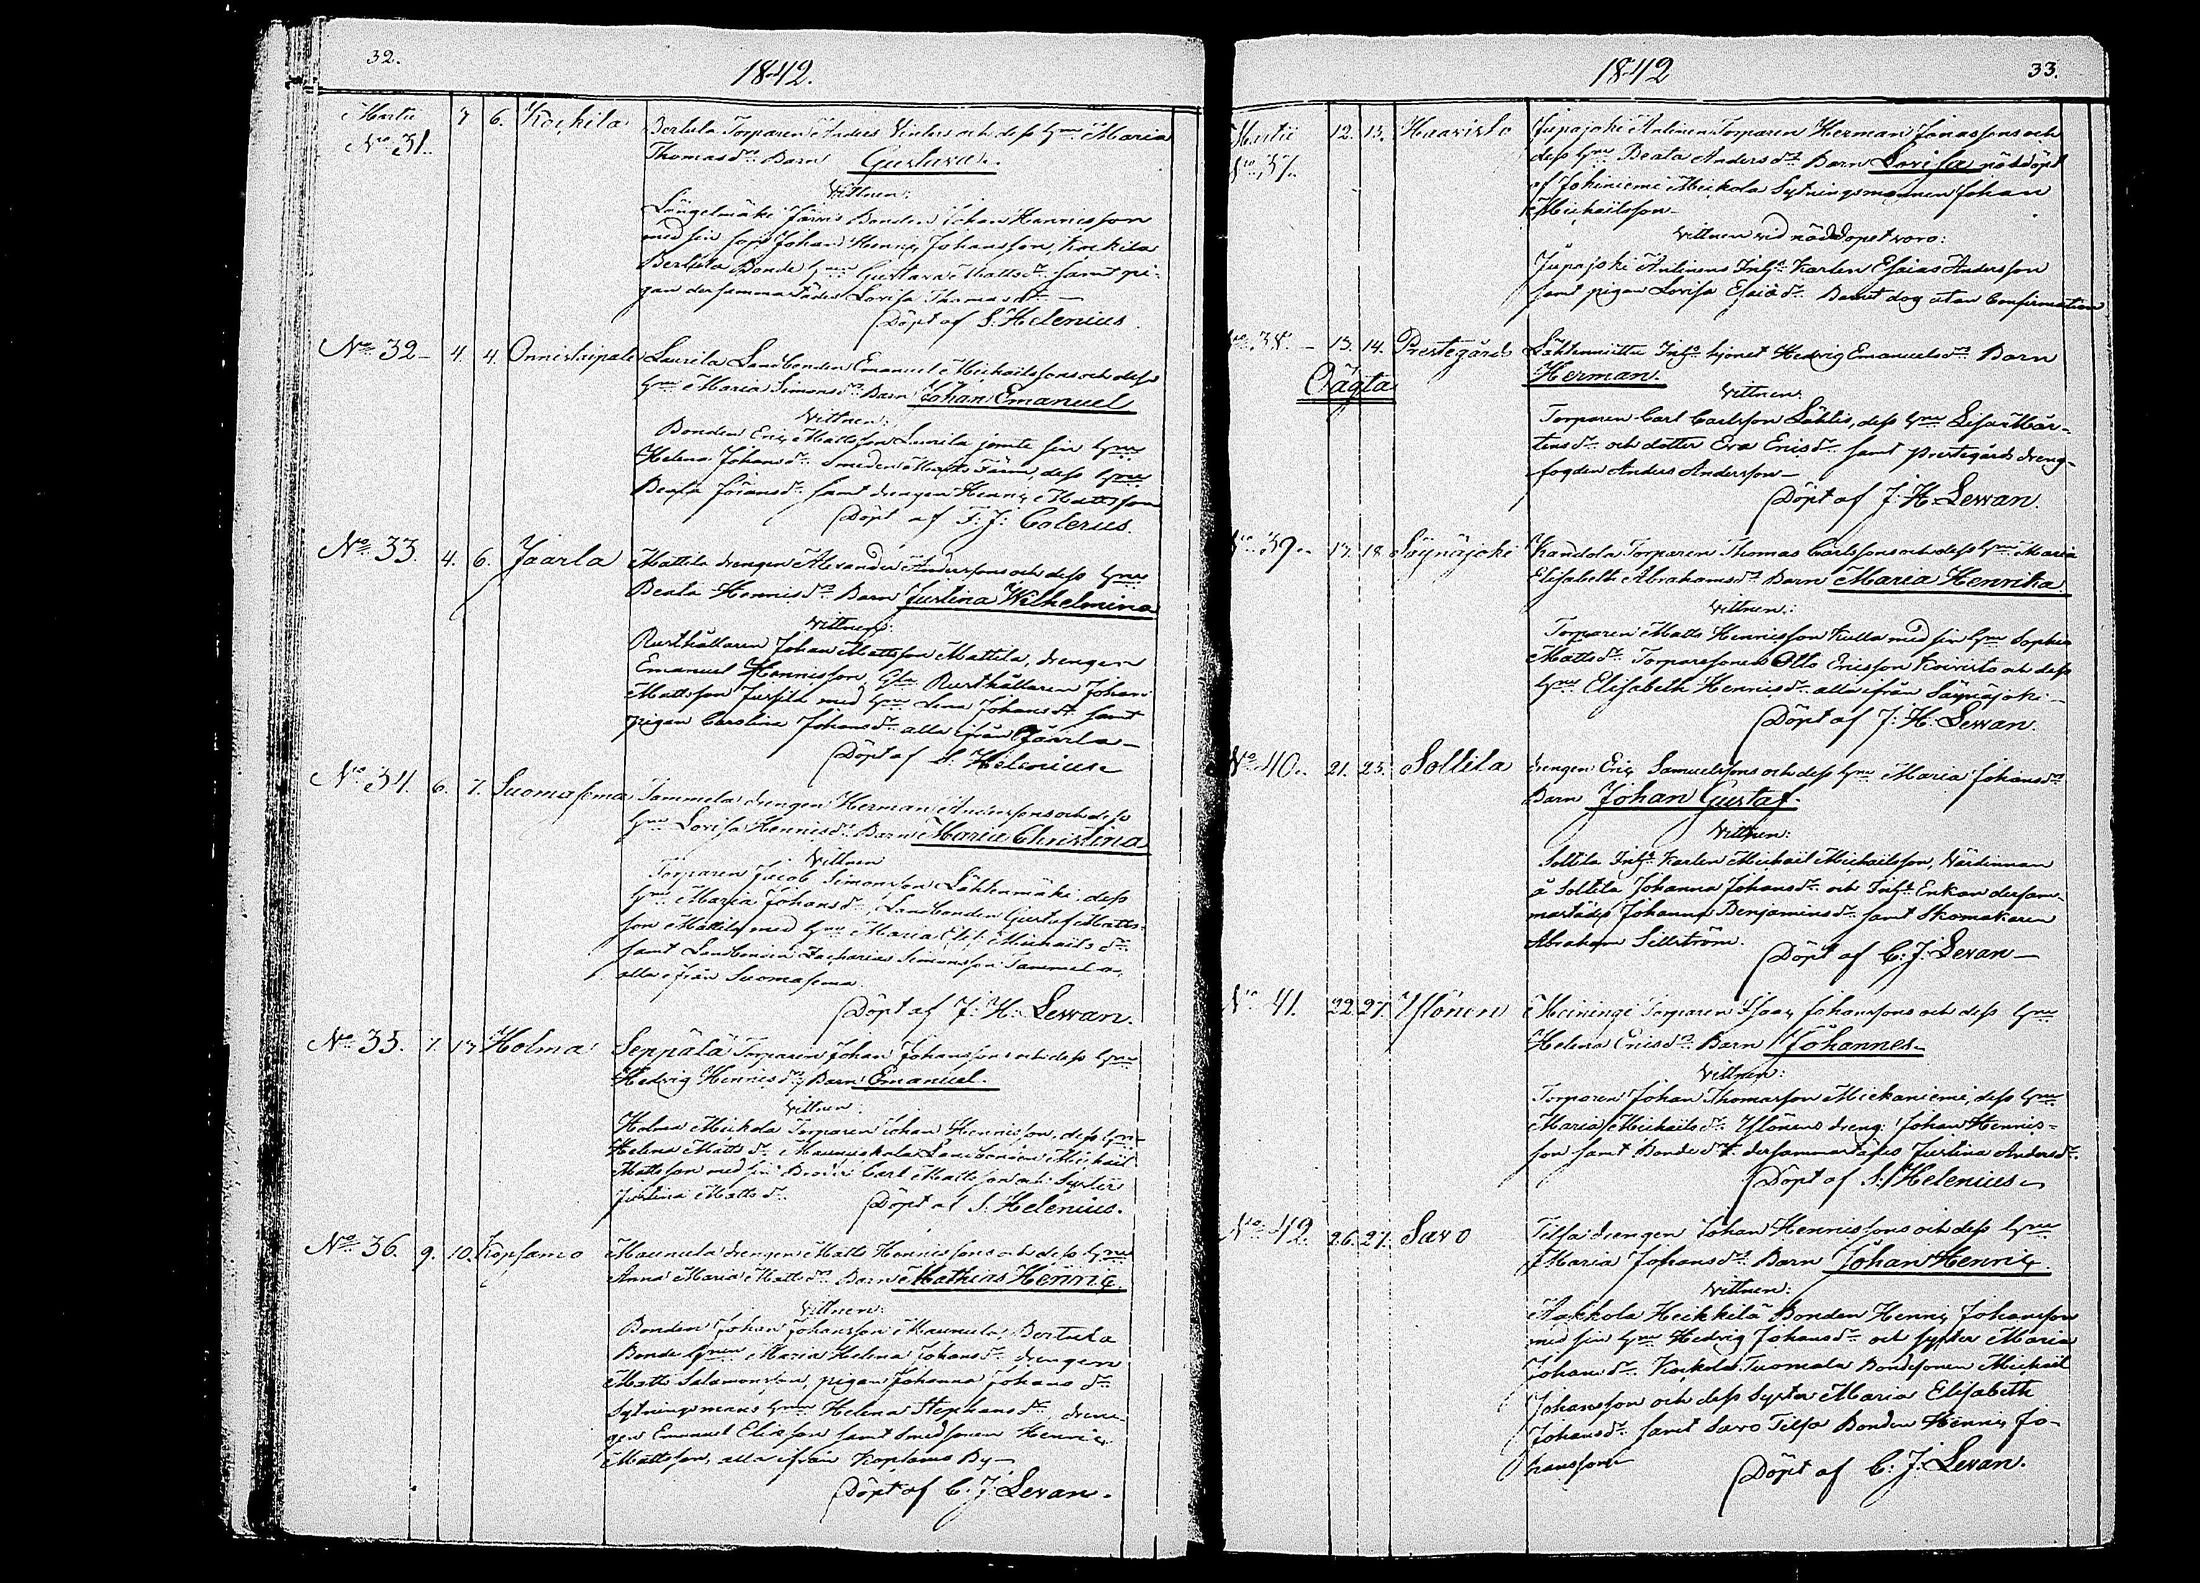 32.
1842.
Martii 7 6. Koskila Bertula Torparen Anders Vinters och dess hu Maria
No 31. Thomasdr Barn Gustava.
Vittnen:
Längelmäki Järvis Bonden Johan Hennisson
med sin son Johan Henric Johansson, Koskila
Bertula Bonde hun Gustava Mattsdr samt pi-
gan dersammastädes Lovisa Thomasdr —
Döpt af S. Helenius.
No 32 — 4. 4. Onniskipale Laurila Landbonden Emanuel Michailssons och dess
hu Maria Simonsdr Barn Johan Emanuel
Vittnen:
Bonden Eric Mattsson Laurila jemte sin hu
Helena Johansdr Smeden Matts Färm, dess hu
Beata Göransdr samt drengen Henric Mattsson
Döpt af F. J: Calerius.
No 33. 4. 6. Jaarla Mattila drengen Alexander Anderssons och dess hu
Beata Hennisdr Barn Justina Wilhelmina
Vittnen:
Rusthållaren Johan Mattsson Mattila, drengen
Emanuel Hennisson, Gla Rusthållaren Johan
Mattsson Jussila med hu Lena Johansdr samt
pigan Carolina Johansdr alla ifrån Jaarla —
Döpt af S. Helenius
No 34. 6. 7. Suomasema Tammela drengen Herman Anderssons och dess
hu Lovisa Hennisdr Barn Maria Christina
Vittnen
Torparen Jacob Simonsson Lähtenmäki, dess
hu Maria Johansdr, Landbonden Gustaf Matts-
son Mattila med hu Maria Elis: Michailsdr
samt Landbonden Zacharias Simonsson Tammela
alla ifrån Suomasema.
Döpt af J: H: Lewan.
No 35. 7. 13 Holma Seppälä Torparen Johan Johanssons och dess hu
Hedvig Hennisdr Barn Emanuel.
Vittnen:
Holma Mickola Torparen Johan Hennisson, dess hu
Helena Mattsdr Maunuskola Landbonden Michail
Mattsson med sin Broder Carl Mattsson och Syster
Justina Mattsdr Döpt af S. Helenius.
No 36. 9. 10. Kopsamo Maunula drengen Matts Hennissons och dess hu
Anna Maria Mattsdr Barn Mathias Henric.
Vittnen:
Bonden Johan Johansson Maunula, Bertula
Bonde hun Maria Helena Johansdr drengen
Matts Salamonsson, pigan Johanna Johansdr
Sytningsmans hu Helena Stephansdr, dren-
gen Emanuel Eliasson samt Smedsonen Henric
Mattsson, alla ifrån Kopsamo By —
Döpt af C. J. Levan.
1842
33.
Martii 12. 13. Haavisto Jupajoki Anlinen Torparen Herman Jonassons och
No 37. dess hu Beata Andersdr Barn Lovisa nöddöpt
af Johiniemi Mickola Sytningsmannen Johan
Michailsson —
Vittnen vid nöddopet voro:
Jupajoki Anlinens Inhs Karlen Esaias Andersson
samt pigan Lovisa Esaiædr Barnet dog utan Confirmation
No 38. — 13. 14. Prestegårds Lähtenniittu Inhs hjonet Hedvig Emanuelsdr Barn
Oägta Herman.
Vittnen:
Torparen Carl Carlsson Lähtis, dess hu Lisa Mår-
tensdr och dotter Eva Ericsdr samt Prestegårds dreng-
fogden Anders Andersson —
Döpt af J: H. Lewan.
No 39. 17. 18. Säynäjoki Kandola Torparen Thomas Carlssons och dess hu Maria
Elisabeth Abrahamsdr Barn Maria Henrika.
Vittnen:
Torparen Matts Hennisson Kulla med sin hu Sophia
Mattsdr Torparesonen Otto Ericsson Koivisto och dess
hu Elisabeth Hennisdr alla ifrån Säynäjoki —
Döpt af J: H: Lewan.
No 40. 21. 25. Sollila drengen Eric Samuelssons och dess hu Maria Johansdr
Barn Johan Gustaf.
Vittnen:
Sollila Inhs Karlen Michail Michailsson, Värdinnan
å Sollila Johanna Johansdr och Inhs Enkan dersam-
mastädes Johanna Benjaminsdr samt Skomakaren
Abraham Sillström. Döpt af C: J. Levan —
No 41. 22. 27. Ylönen Meiningi Torparen Isaac Johanssons och dess hu
Helena Ericsdr Barn Johannes.
Vittnen:
Torparen Johan Thomasson Mickaniemi, dess hu
Maria Michailsdr Ylönens dreng Johan Hennis-
son samt Bondedr dersammastädes Justina Andersdr.
Döpt af S. Helenius
No 42. 26. 27. Savo Tilsa drengen Johan Hennissons och dess hu
Maria Johansdr Barn Johan Henric.
Vittnen:
Aakkola Heikkilä Bonden Henric Johansson
med sin hu Hedvig Johansdr och syster Maria
Johansdr Koskola Tuomala Bondesonen Michail
Johansson och dess Syster Maria Elisabeth
Johansdr samt Savo Tilsa Bonden Henric Jo-
hansson — Döpt af C: J. Levan.